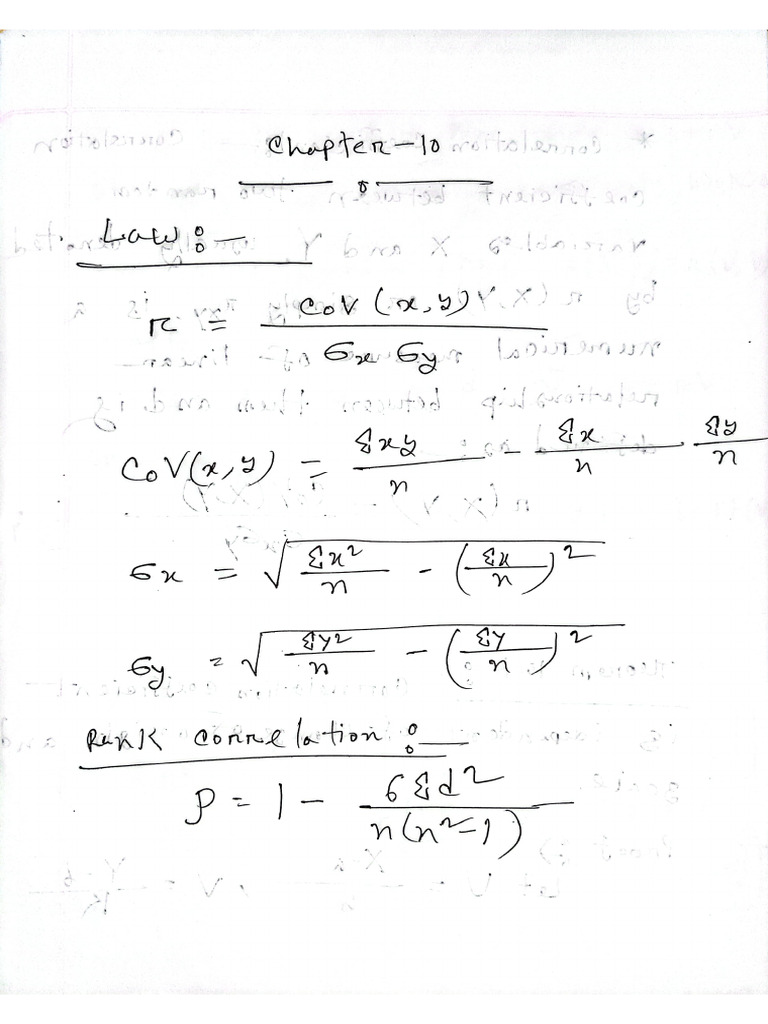 Chapter-10
Law:-
r = Cov(x,y) / σx σy
Cov(x,y) = Σxy/n - Σx/n · Σy/n
σx = √(Σx²/n - (Σx/n)²)
σy = √(Σy²/n - (Σy/n)²)
Rank correlation:-
ρ = 1 - 6Σd² / n(n²-1)